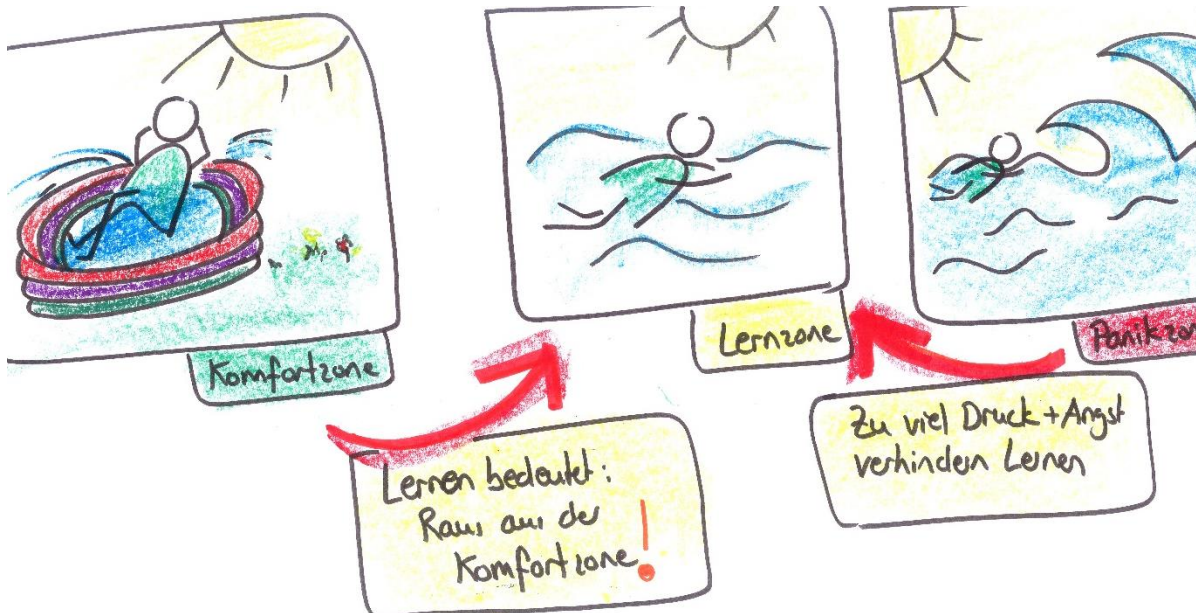 Komfortzone
Lernzone
Panikzo
Lernen bedeutet:
Raus aus der
Komfortzone!
Zu viel Druck+Angst
verhindern Lernen